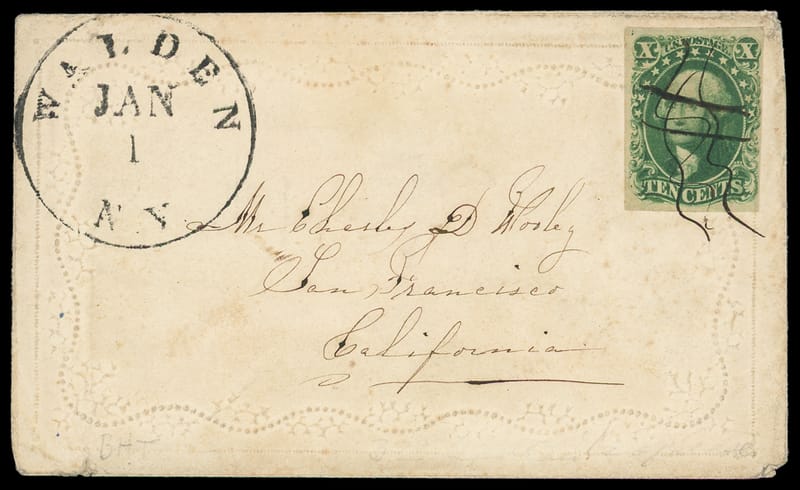 WALDEN
JAN
1
N Y
X U.S. POSTAGE X
TEN CENTS
Mr Charles D Wooley
San Francisco
California
BHT